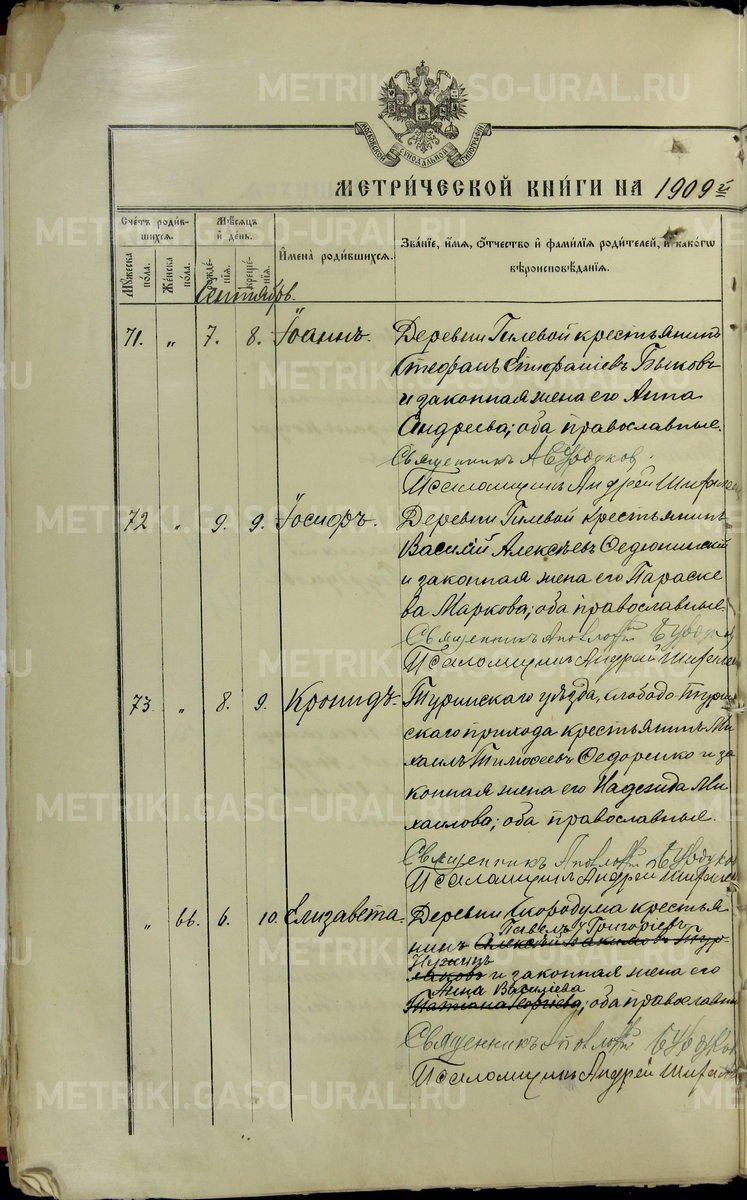 METRIKI.GASO-URAL.RU
МОСКОВСКОЙ СѴНОДАЛЬНОЙ ТИПОГРАФІИ
МЕТРИ́ЧЕСКОЙ КНИ́ГИ НА 1909 й
Сче́тъ роди́вшихся.
Му́жеска по́ла.
Же́нска по́ла.
Мѣ́сяцъ и҆ де́нь.
рожде́нїя.
креще́нїя.
И҆мена̀ роди́вшихся.
Зва́нїе, и҆́мя, ѻ҆́тчество и҆ фами́лїя роди́телей, и҆ како́гѡ вѣроисповѣ́данїя.
Сентябрь.
71. „ 7. 8. Іоаннъ.
Деревни Гилевой крестьянинъ
Стефанъ Епифаніевъ Быковъ
и законная жена его Анна
Андреева; оба православные.
Священникъ А
Псаломщикъ Андрей
72 „ 9. 9. Іосифъ.
Деревни Гилевой крестьянинъ
Василій Алексѣевъ Федюнинскій
и законная жена его Параске
ва Маркова; оба православные.
Священникъ Аполлоній
Псаломщикъ Андрей
73 „ 8. 9. Кронидъ.
Туринскаго уѣзда, слободо-Турин
скаго прихода крестьянинъ Ми
хаилъ Тимофеевъ Федоренко и за
конная жена его Надежда Ми
хаилова; оба православные.
Священникъ Аполлоній
Псаломщикъ Андрей
„ 66. 6. 10. Елизавета.
Деревни Скородума крестья
Павелъ Григорьевъ
нинъ
и законная жена его
Анна Василіева
Татіана Георгіева; оба православные
Священникъ Аполлоній
Псаломщикъ Андрей